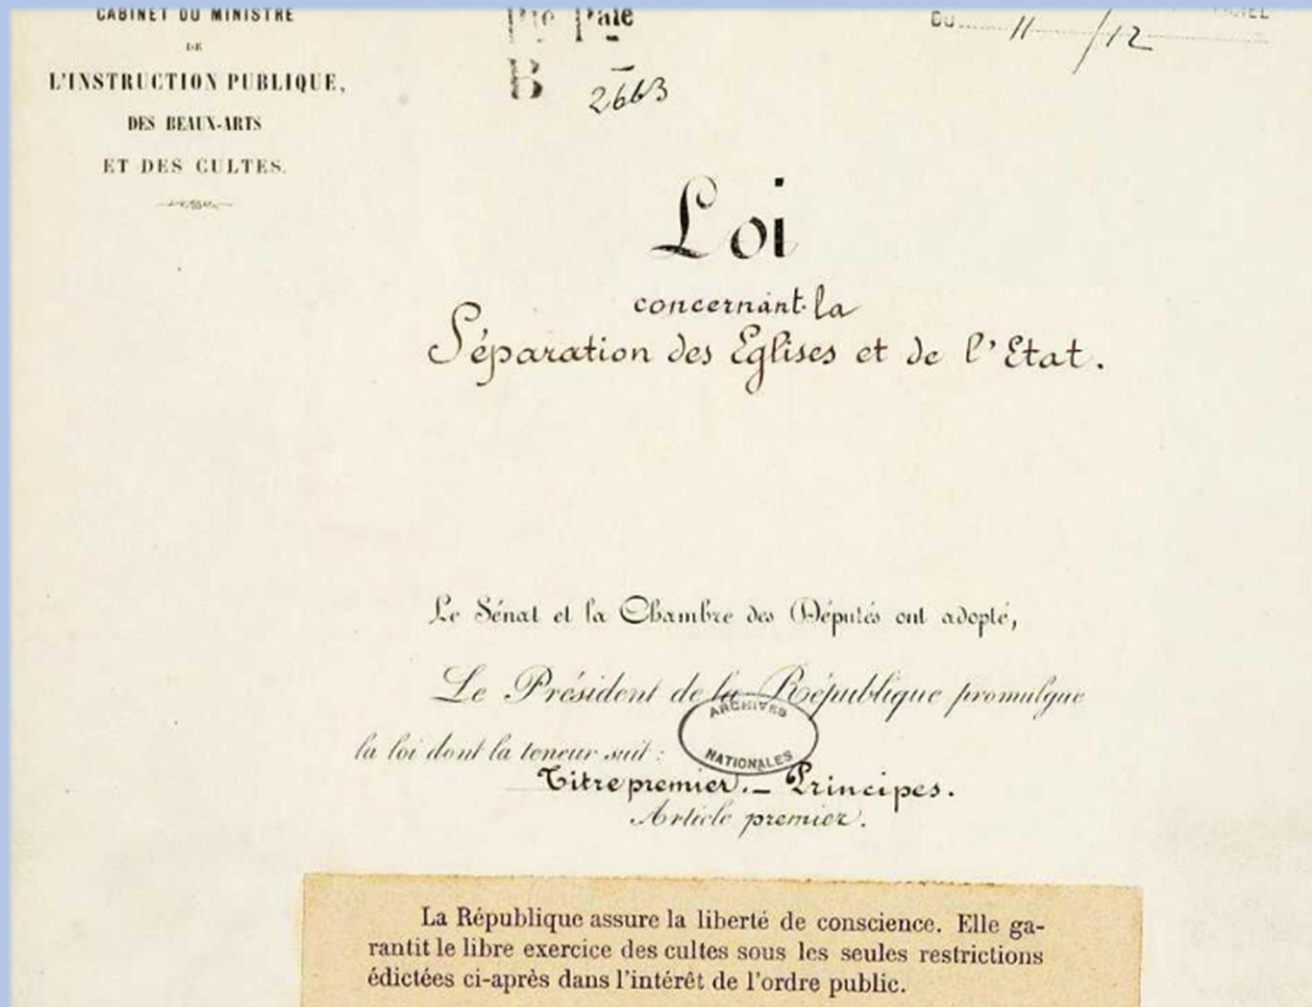 CABINET DU MINISTRE
DE
L'INSTRUCTION PUBLIQUE,
DES BEAUX-ARTS
ET DES CULTES.
B 2663
DU 11/12
Loi
concernant la
Séparation des Eglises et de l'Etat.
Le Sénat et la Chambre des Députés ont adopté,
Le Président de la République promulgue
la loi dont la teneur suit :
ARCHIVES
NATIONALES
Titre premier. – Principes.
Article premier.
La République assure la liberté de conscience. Elle ga-
rantit le libre exercice des cultes sous les seules restrictions
édictées ci-après dans l'intérêt de l'ordre public.